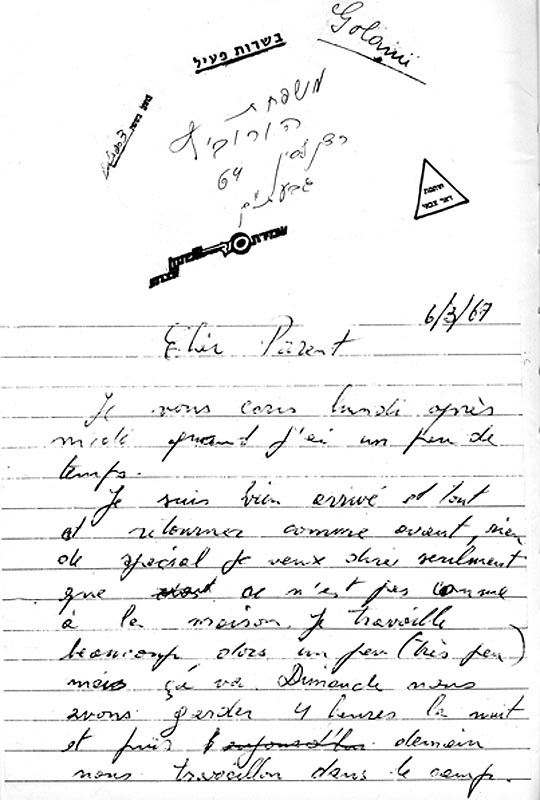 Golani
בשרות פעיל
משפחת
הורוביץ
64
גבעתיים
חותמת
דאר צבאי
6/3/67
Cher Parent
Je vous ecris lundi après
midi quand j'ai un peu de
temps.
Je suis bien arrivé et tout
et retourner comme avant, rien
de spécial je veux dire seulment
que ce n'est pas comme
à la maison. Je travaille
beaucoup dors un peu (très peu)
mais çá va. Dimande nous
avons garder 4 heures la nuit
et puis demain
nous travaillon dans le camp.